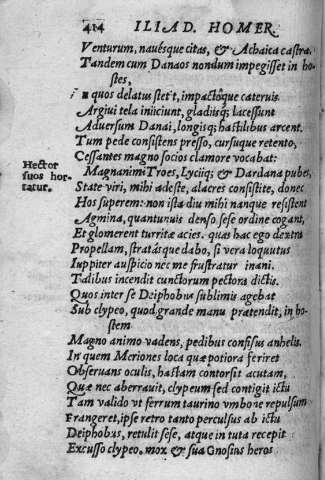 414 ILIAD. HOMER.
Venturum, nauésque citas, & Achaica castra.
Tandem cum Danaos nondum impegisset in ho-
stes,
quos delatus stetit, impactóque cateruis.
Argiui tela iniiciunt, gladiisq; lacessunt
Aduersum Danai, longisq; hastilibus arcent.
Tum pede consistens presso, cursuque retento,
Cessantes magno socios clamore vocabat:
Hector
suos hor-
tatur.
Magnanimi Troes, Lyciiq; & Dardana pubes,
State viri, mihi adeste, alacres consistite, donec
Hos superem: non ista diu mihi nanque resistent
Agmina, quantumuis denso sese ordine cogant,
Et glomerent turritæ acies. quas hac ego dextra
Propellam, stratásque dabo, si vera loquutus
Iuppiter auspicio nec me frustratur inani.
Talibus incendit cunctorum pectora dictis.
Quos inter se Deiphobus sublimis agebat
Sub clypeo, quod grande manu prætendit, in ho-
stem
Magno animo vadens, pedibus confisus anhelis.
In quem Meriones loca quæ potiora feriret
Obseruans oculis, hastam contorsit acutam,
Quæ nec aberrauit, clypeum sed contigit ictu
Tam valido vt ferrum taurino vmbone repulsum
Frangeret, ipse retro tanto perculsus ab ictu
Deiphobus, retulit sese, atque in tuta recepit
Excusso clypeo. mox & sua Gnosius heros